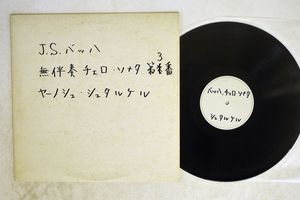 J.S. バッハ
3
無伴奏 チェロ・ソナタ 第番
ヤーノシュ・シュタルケル
バッハ チェロ・ソナタ
シュタルケル